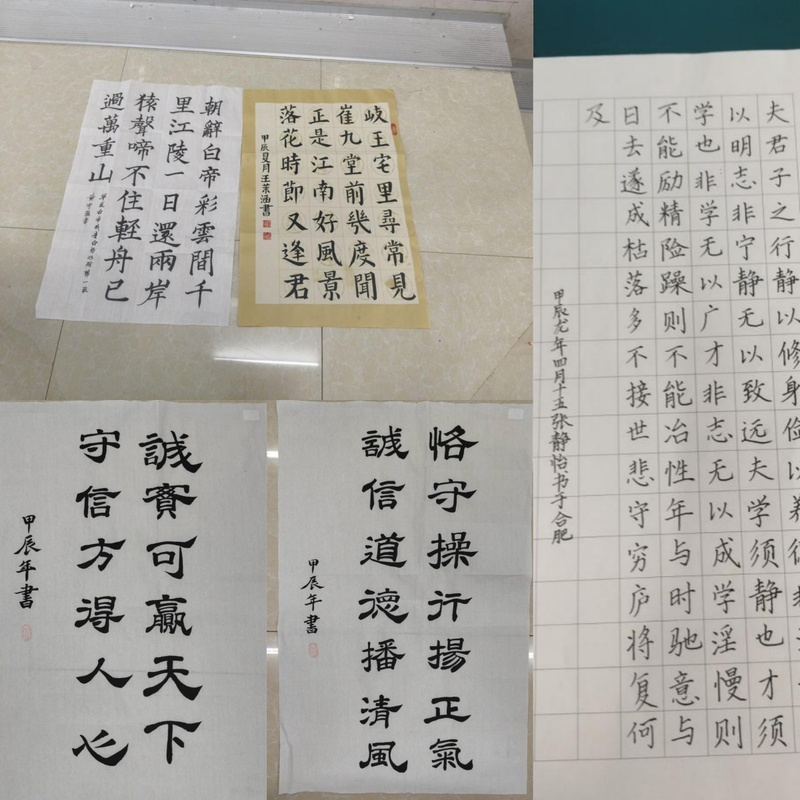 朝辭白帝彩雲間千
里江陵一日還兩岸
猿聲啼不住輕舟已
過萬重山
岐王宅里尋常見
崔九堂前幾度聞
正是江南好風景
落花時節又逢君
甲辰夏月書
夫君子之行静以修身俭以养德
以明志非宁静无以致远夫学须静也才须
学也非学无以广才非志无以成学淫慢则
不能励精险躁则不能冶性年与时驰意与
日去遂成枯落多不接世悲守穷庐将复何
及
甲辰龙年四月十五张静怡书于合肥
誠實可贏天下
守信方得人心
甲辰年書
恪守操行揚正氣
誠信道德播清風
甲辰年書